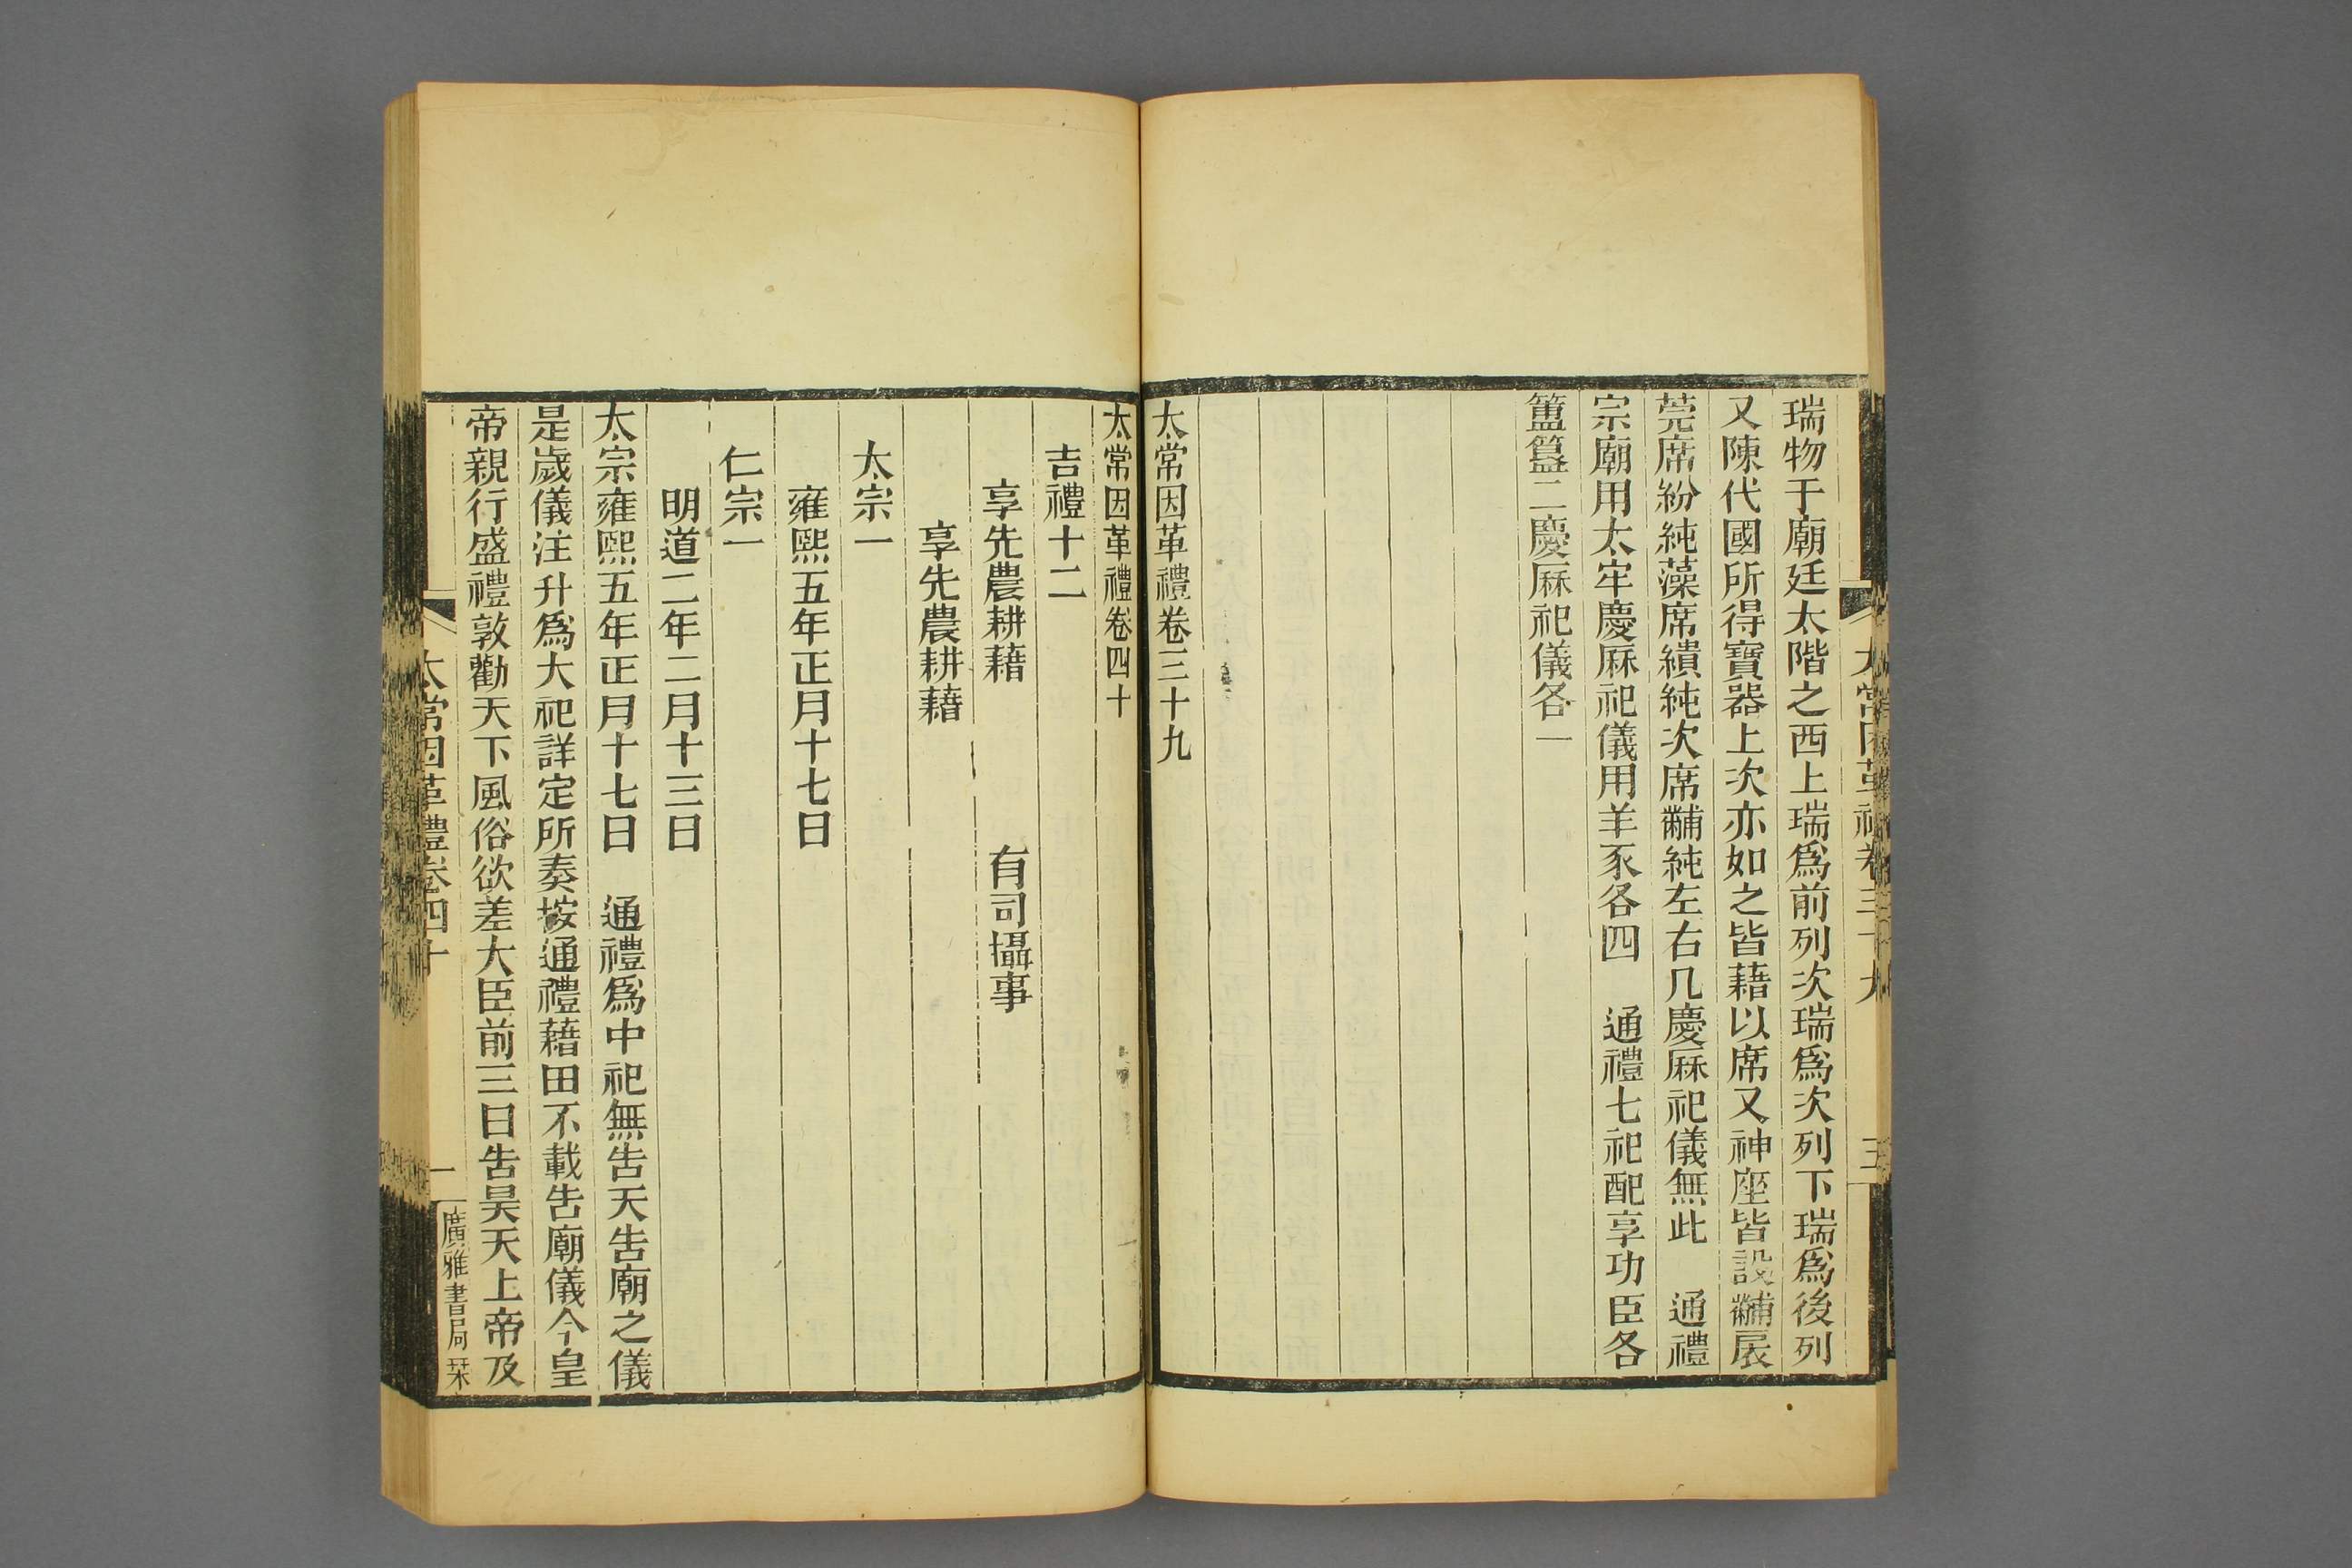 太常因革禮卷三十九
五
瑞物于廟廷太階之西上瑞爲前列次瑞爲次列下瑞爲後列
又陳代國所得寶器上次亦如之皆藉以席又神座皆設黼扆
莞席紛純藻席繢純次席黼純左右几慶厤祀儀無此　通禮
宗廟用太牢慶厤祀儀用羊豕各四　通禮七祀配享功臣各
簠簋二慶厤祀儀各一
太常因革禮卷三十九
太常因革禮卷四十
吉禮十二
享先農耕藉　有司攝事
享先農耕藉
太宗一
雍熙五年正月十七日
仁宗一
明道二年二月十三日
太宗雍熙五年正月十七日　通禮爲中祀無告天告廟之儀
是歲儀注升爲大祀詳定所奏按通禮藉田不載告廟儀今皇
帝親行盛禮敦勸天下風俗欲差大臣前三日告昊天上帝及
太常因革禮卷四十
一
廣雅書局栞